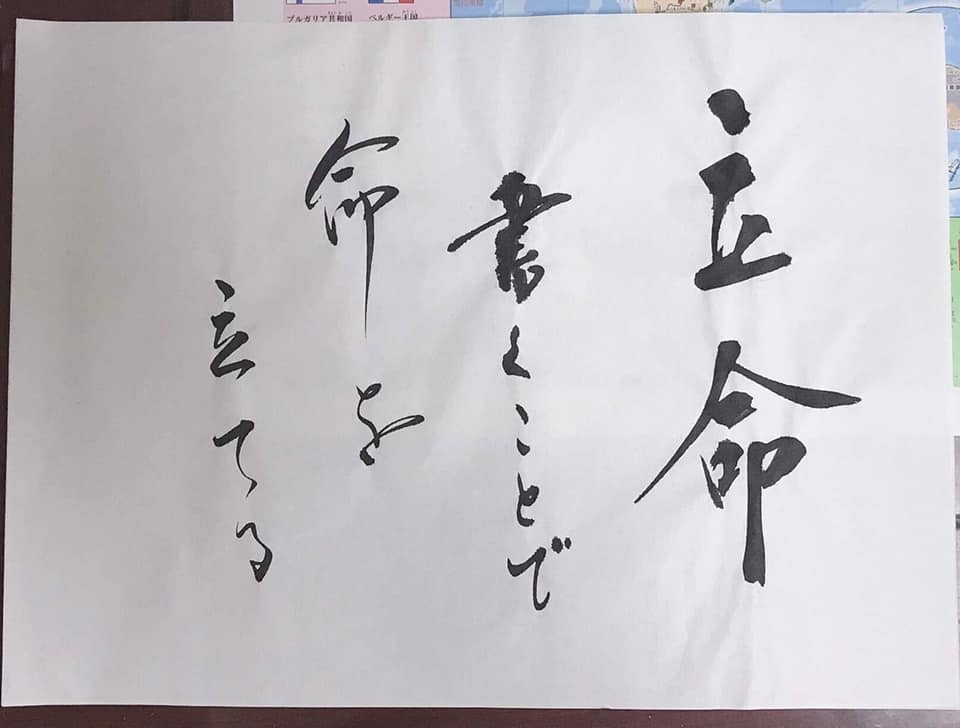 立命
書くことで
命を
立てる
ブルガリア共和国
ベルギー王国